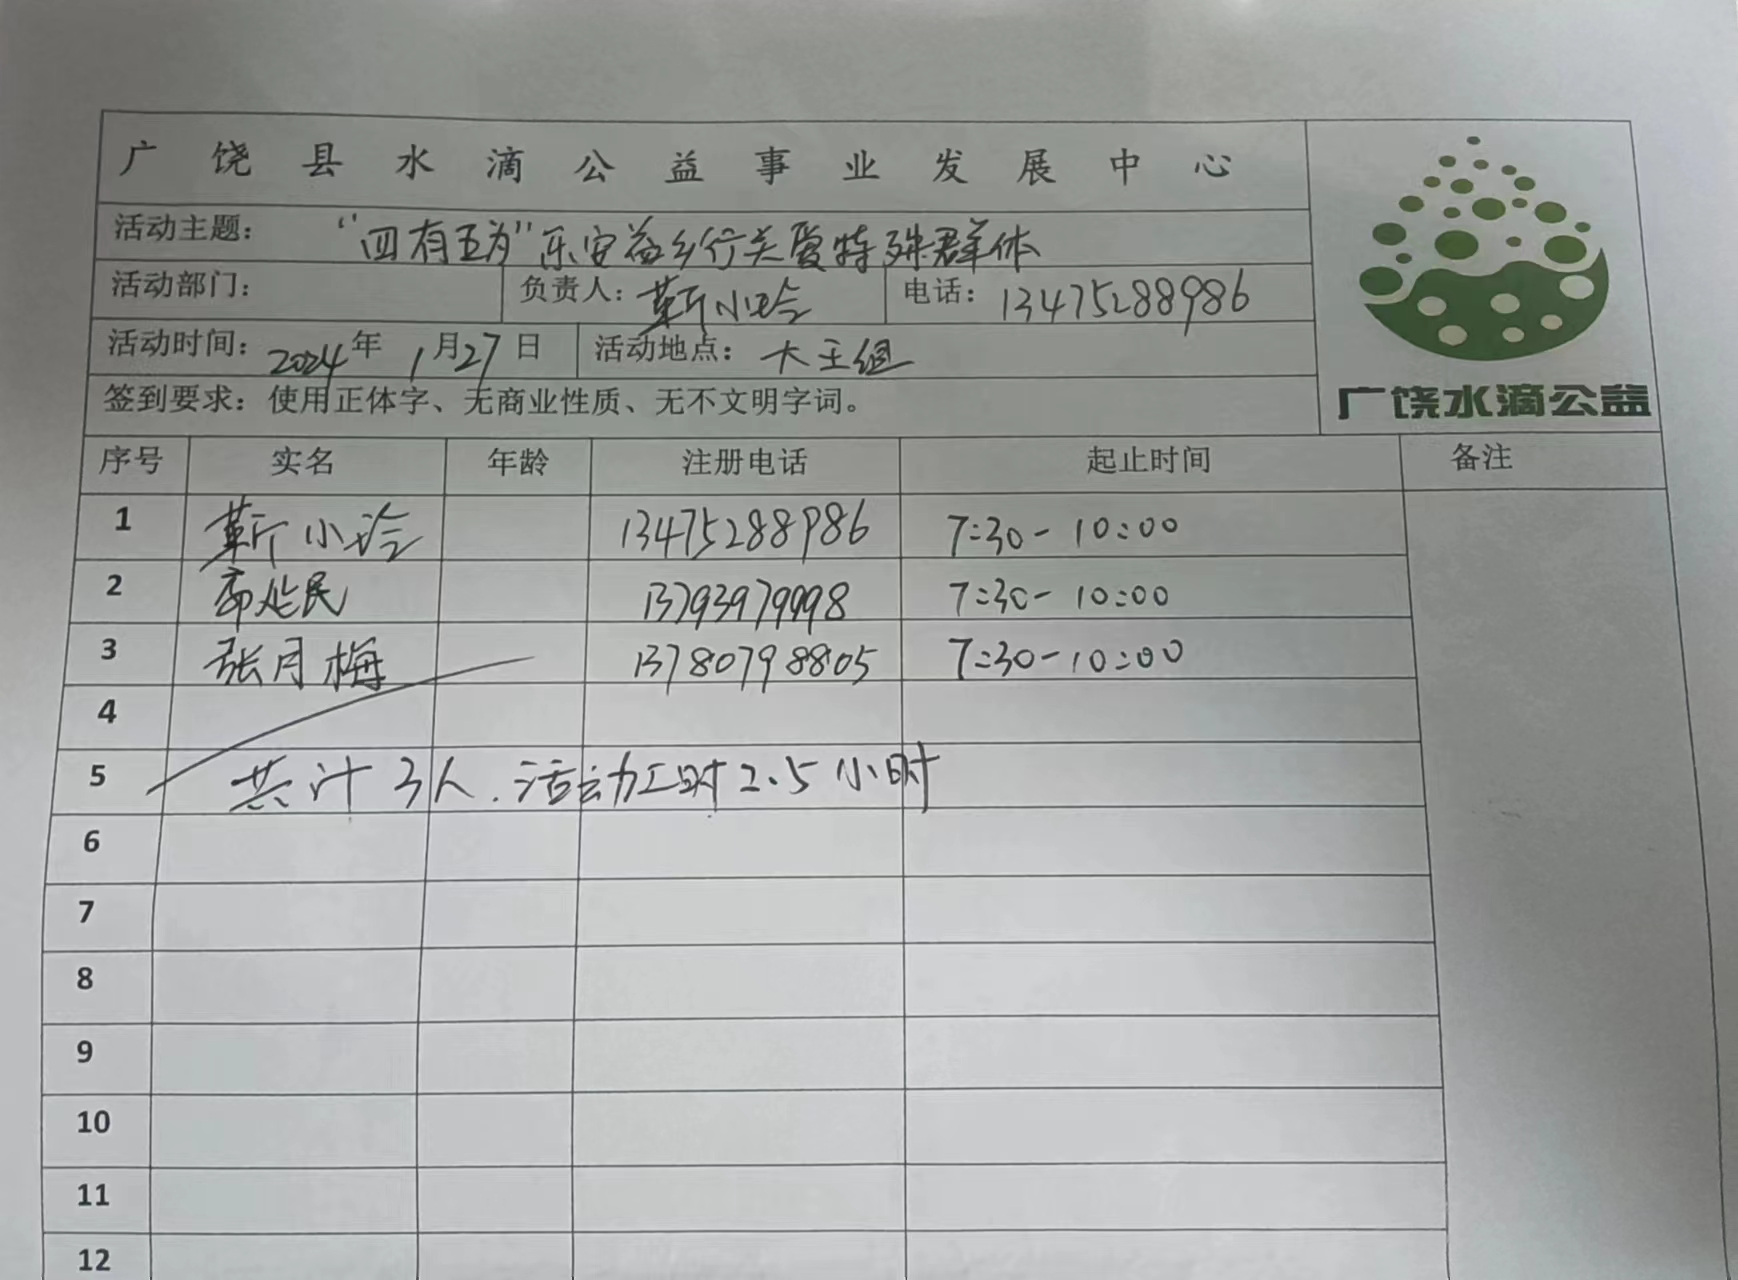 广饶县水滴公益事业发展中心
活动主题： “四有五为”乐安益乡行关爱特殊群体
活动部门： 负责人：靳小玲 电话：13475288986
活动时间：2024年1月27日 活动地点：大王组
签到要求：使用正体字、无商业性质、无不文明字词。
广饶水滴公益
序号 实名 年龄 注册电话 起止时间 备注
1 靳小玲 13475288986 7:30-10:00
2 延民 13793979998 7:30-10:00
3 张月梅 13780798805 7:30-10:00
4
5 共计3人.活动工时2.5小时
6
7
8
9
10
11
12